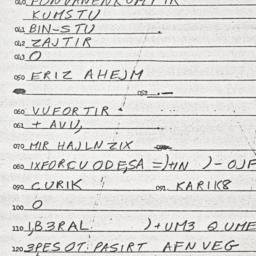 KUMSTU
041 BIN-STU
042 ZAJTIR
043 O
050 ERIZ AHEJM
052 —
060 VUFORTIR
061 + AVIJ,
070 MIR HAJLNZIX
080 IXFORCUODESA =)+IN )-OJF
090 CURIK 091 KARIK8
100 O
110 1,B3RAL )+UM3 QUME
120 3PESOT: PASIRT AFNVEG